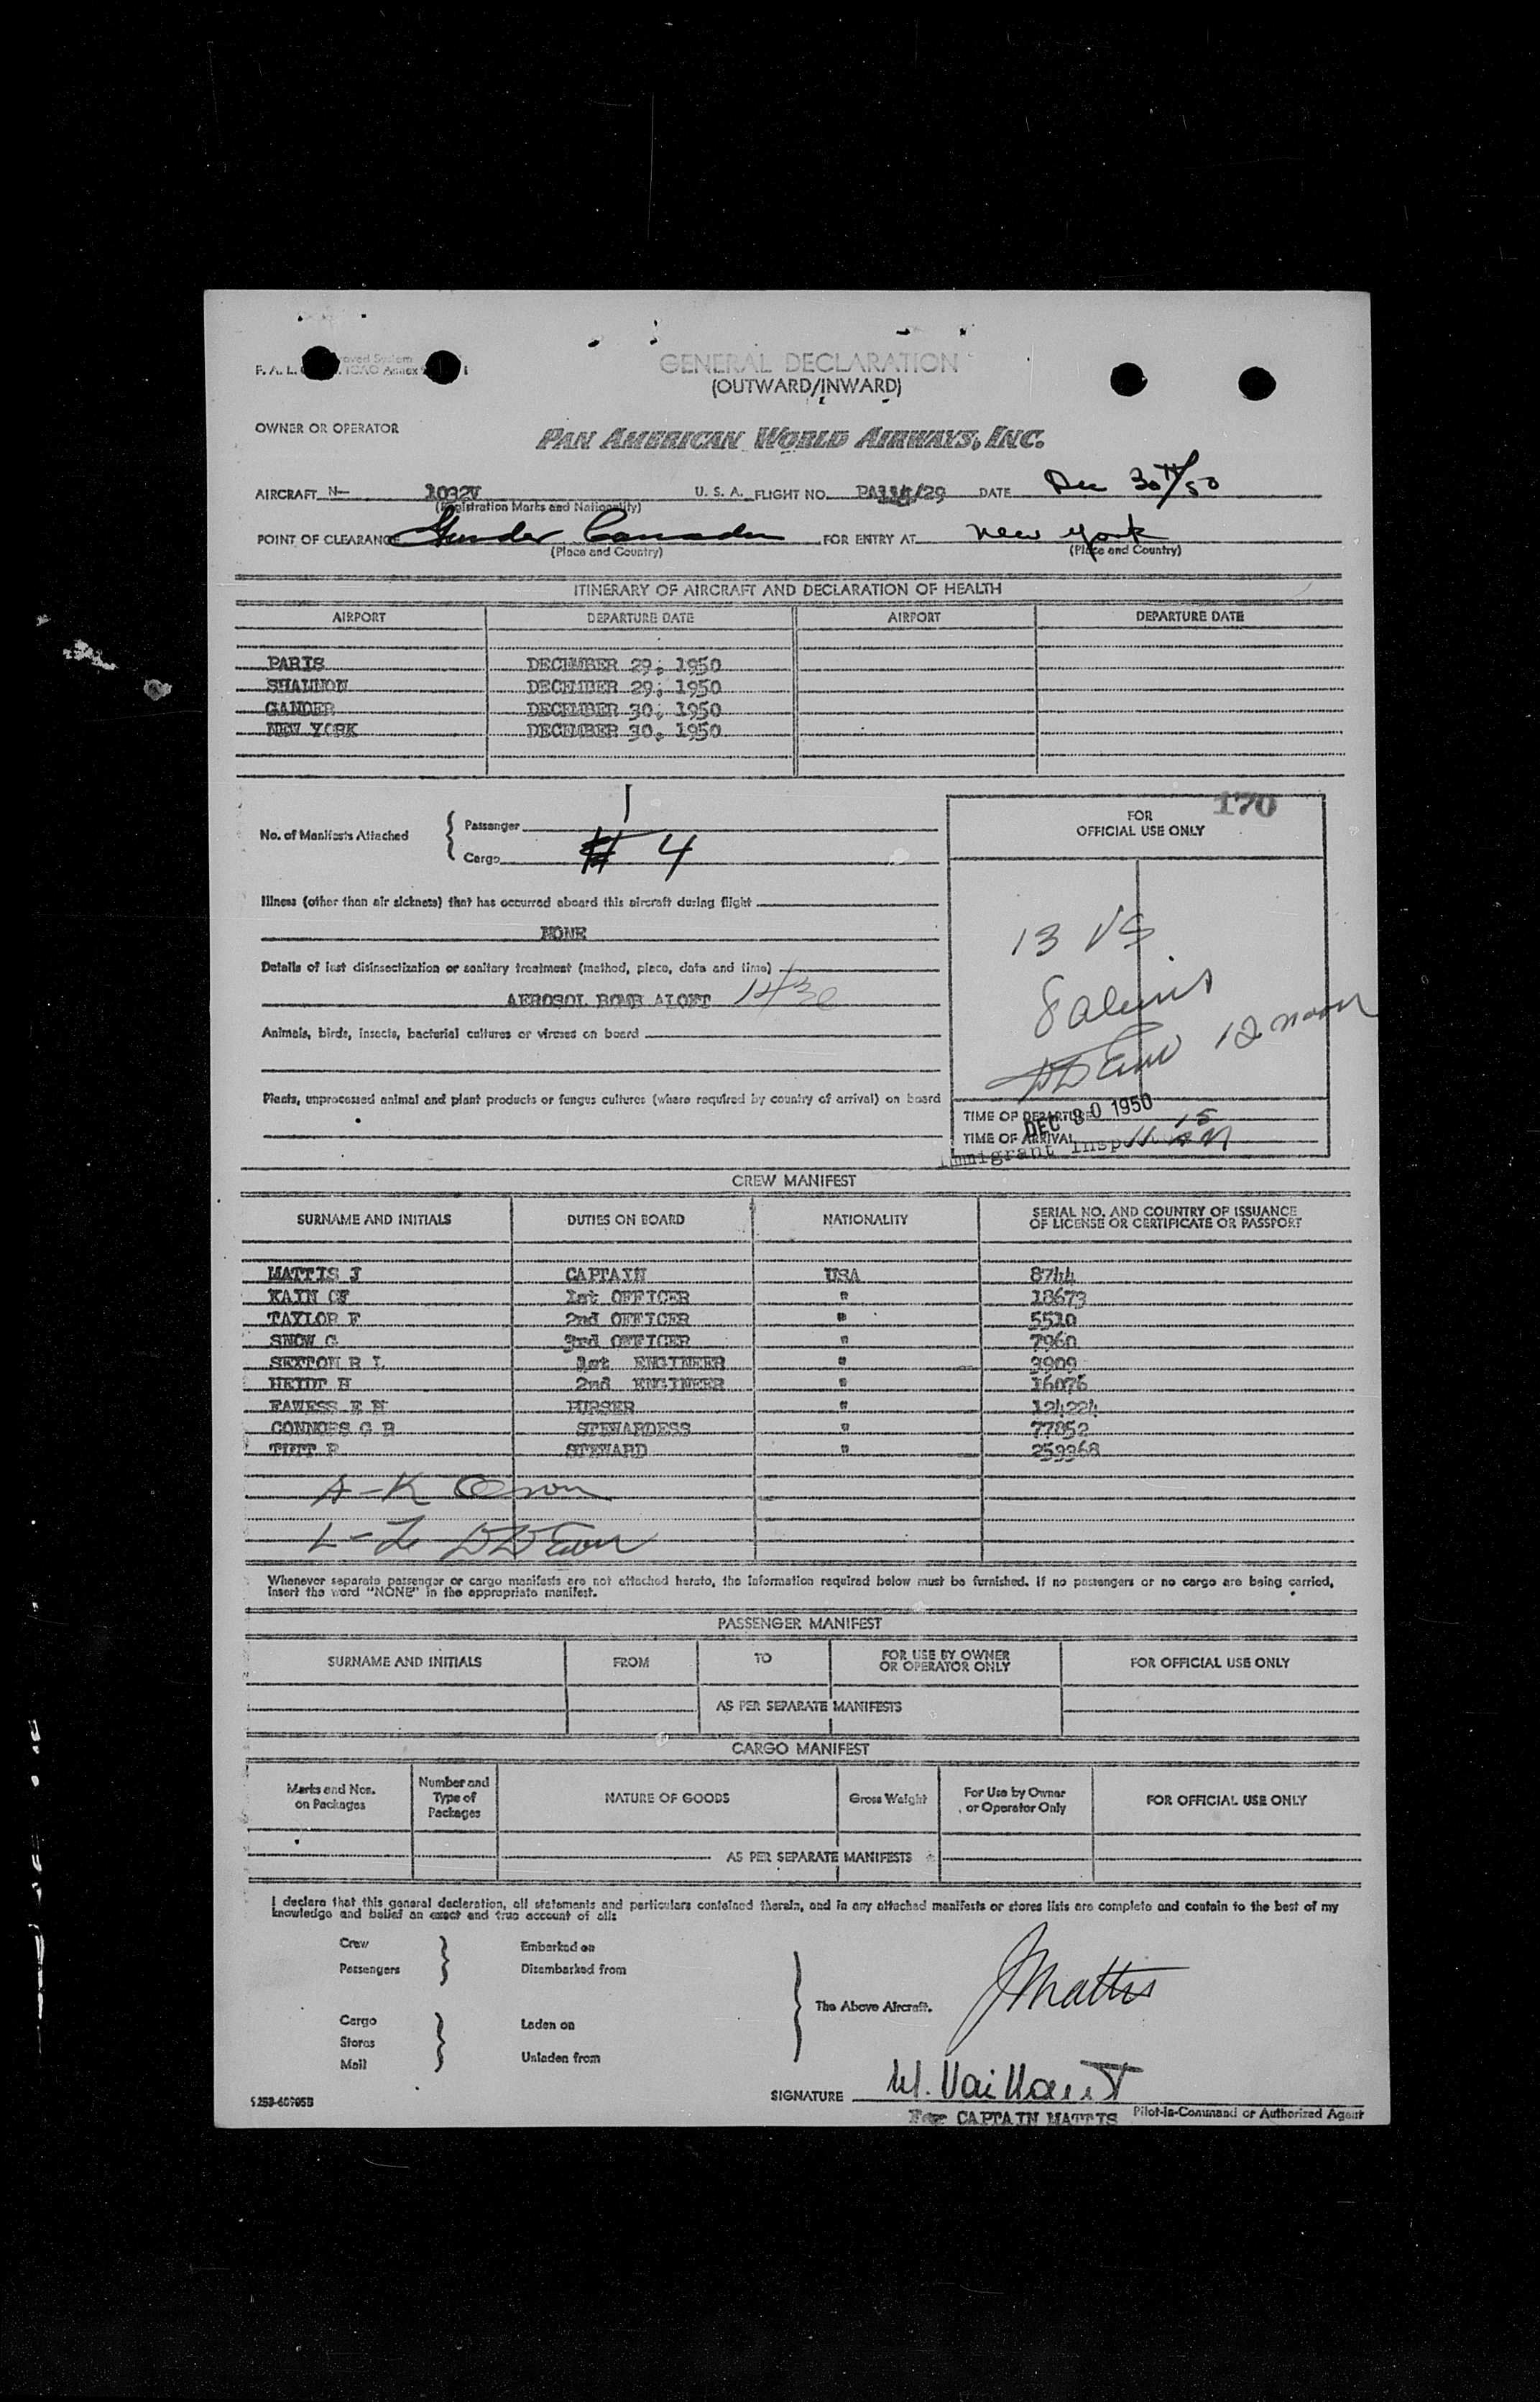 GENERAL DECLARATION
(OUTWARD/INWARD)
OWNER OR OPERATOR PAN AMERICAN WORLD AIRWAYS, INC.
AIRCRAFT N- 1032V U. S. A. FLIGHT NO. DATE Dec 30th/50
(Registration Marks and Nationality)
POINT OF CLEARANCE Gander Canada FOR ENTRY AT New York
(Place and Country) (Place and Country)
ITINERARY OF AIRCRAFT AND DECLARATION OF HEALTH
AIRPORT DEPARTURE DATE AIRPORT DEPARTURE DATE
PARIS DECEMBER 29, 1950
SHANNON DECEMBER 29, 1950
GANDER DECEMBER 30, 1950
NEW YORK DECEMBER 30, 1950
No. of Manifests Attached
Passenger 1
Cargo # 4
Illness (other than air sickness) that has occurred aboard this aircraft during flight
NONE
Details of last disinsectization or sanitary treatment (method, place, date and time)
AEROSOL BOMB ALOFT
Animals, birds, insects, bacterial cultures or viruses on board
Plants, unprocessed animal and plant products or fungus cultures (where required by country of arrival) on board
170
FOR
OFFICIAL USE ONLY
13 US
8 aliens
12 noon
TIME OF DEPARTURE
DEC 30 1950
TIME OF ARRIVAL
Immigrant Insp
CREW MANIFEST
SURNAME AND INITIALS DUTIES ON BOARD NATIONALITY SERIAL NO. AND COUNTRY OF ISSUANCE
OF LICENSE OR CERTIFICATE OR PASSPORT
MATTIS J CAPTAIN USA 8744
KAIN CF 1st OFFICER " 18673
TAYLOR F 2nd OFFICER " 5510
SNOW G 3rd OFFICER " 7960
SEXTON R L 1st ENGINEER " 3909
HEIDT H 2nd ENGINEER " 16076
FAWESS E N PURSER " 124224
CONNORS G R STEWARDESS " 77852
TUTT R STEWARD " 259968
A-K
L-Z
Whenever separate passenger or cargo manifests are not attached hereto, the information required below must be furnished. If no passengers or no cargo are being carried,
insert the word "NONE" in the appropriate manifest.
PASSENGER MANIFEST
SURNAME AND INITIALS FROM TO FOR USE BY OWNER
OR OPERATOR ONLY FOR OFFICIAL USE ONLY
AS PER SEPARATE MANIFESTS
CARGO MANIFEST
Marks and Nos.
on Packages Number and
Type of
Packages NATURE OF GOODS Gross Weight For Use by Owner
or Operator Only FOR OFFICIAL USE ONLY
AS PER SEPARATE MANIFESTS
I declare that this general declaration, all statements and particulars contained therein, and in any attached manifests or stores lists are complete and contain to the best of my
knowledge and belief an exact and true account of all:
Crew Embarked on
Passengers Disembarked from
The Above Aircraft.
J Mattis
Cargo Laden on
Stores
Mail Unladen from
SIGNATURE W. Vaillant
For CAPTAIN MATTIS Pilot-in-Command or Authorized Agent